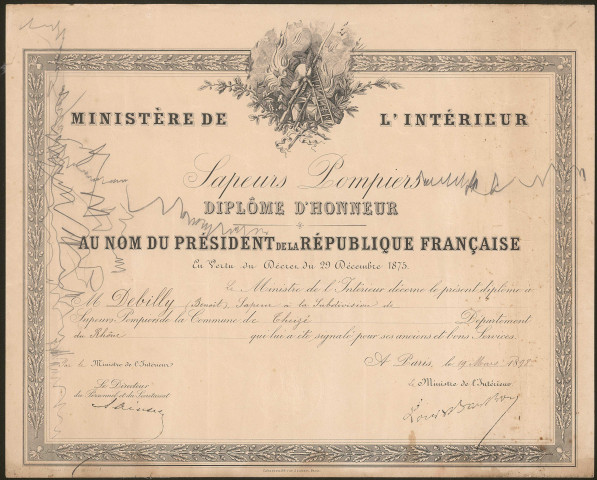 MINISTÈRE DE L'INTÉRIEUR
Sapeurs Pompiers
DIPLÔME D'HONNEUR
AU NOM DU PRÉSIDENT DE LA RÉPUBLIQUE FRANÇAISE
En Vertu du Décret du 29 Décembre 1875.
Le Ministre de l'Intérieur décerne le présent diplôme à
M Debilly (Benoît) Sapeur à la Subdivision de
Sapeurs-Pompiers de la Commune de Theizé Département
du Rhône qui lui a été signalé pour ses anciens et bons Services.
A Paris, le 19 Mars
Par le Ministre de l'Intérieur
Le Ministre de l'Intérieur
Le Directeur
du Personnel et du Secrétariat
Louis Barthou